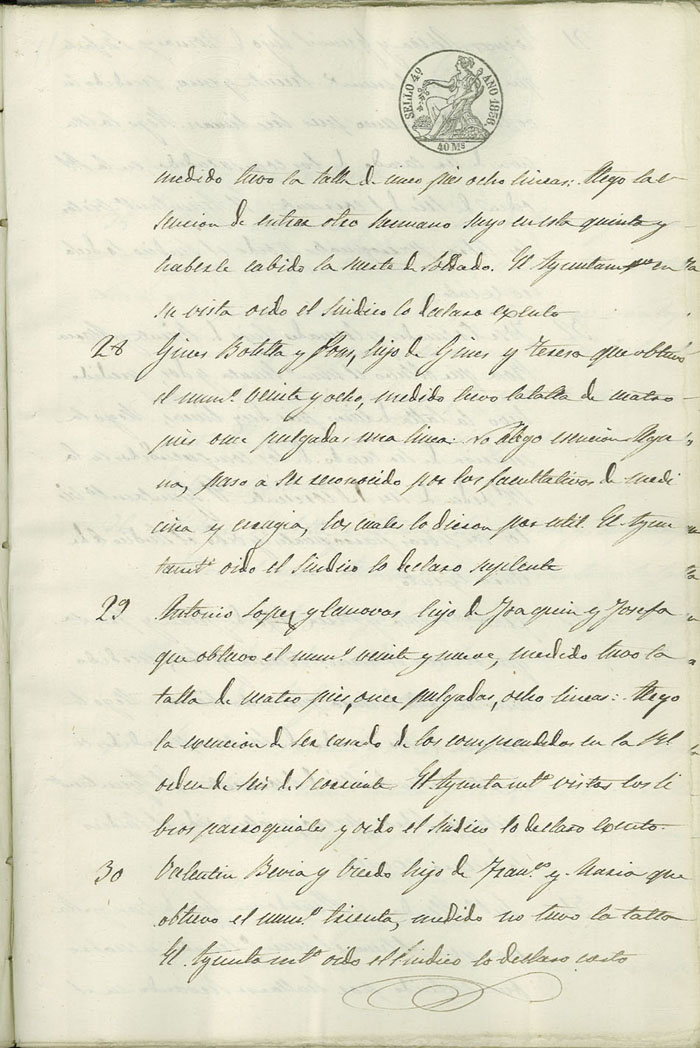 SELLO 4º AÑO 1858.
40 Ms
medido tuvo la talla de cinco pies ocho lineas: Alego la e
sencion de entrar otro hermano suyo en esta quinta y
haberle cabido la suerte de soldado. El Ayuntamto en
su vista oido el Sindico lo declaro exento
28 Gines Botella y Pons, hijo de Gines y Teresa que obtuvo
el numº veinte y ocho, medido tuvo la talla de cuatro
pies once pulgadas una linea: No alego esencion algu
na, paso a ser reconocido por los facultativos de medi
cina y cirugia, los cuales lo dieron por util. El Ayun
tamtº oido el Sindico lo declaro suplente
29 Antonio Lopez y Canovas hijo de Joaquin y Josefa
que obtuvo el numº veinte y nueve, medido tuvo la
talla de cuatro pies, once pulgadas, ocho lineas: Alego
la esencion de ser casado de los comprendidos en la Rl
orden de seis del corriente El Ayuntamtº vistos los li
bros parroquiales y oido el Sindico lo declaro exento.
30 Valentin Bevia y hijo de Franco y Maria que
obtuvo el numº treinta, medido no tuvo la talla
El Ayuntamtº oido el Sindico lo declaro corto